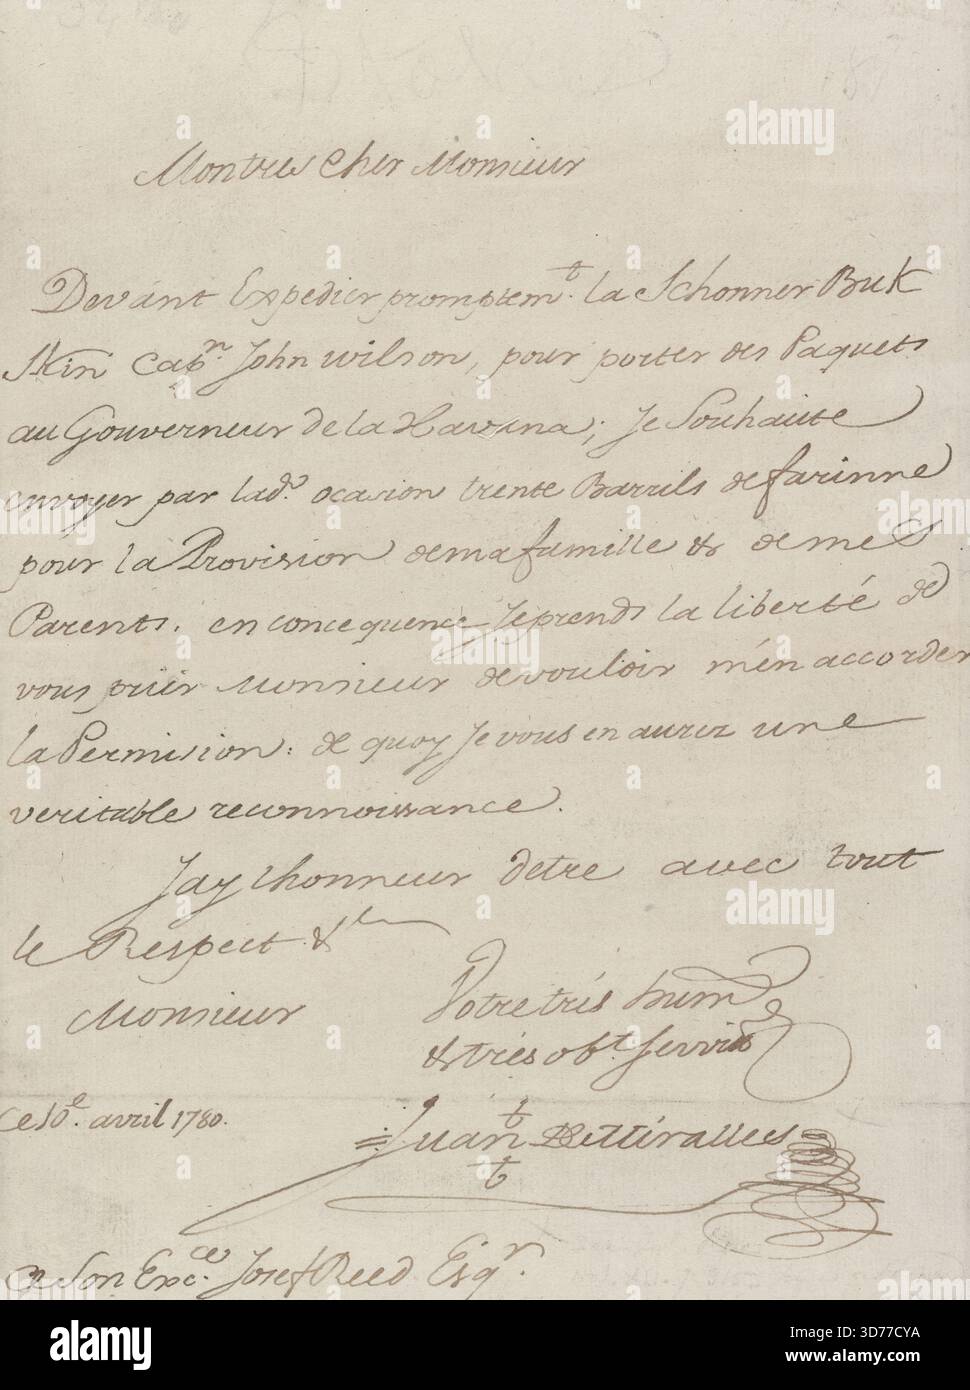 Montres Cher Monsieur
Devant Expedier promptemt. la Schonner Buk
Skin Capn. John Wilson, pour porter des Paquets
au Gouverneur de la Havana; Je Souhaite
envoyer par ladº. ocasion trente Barrils de farinne
pour la Provision de ma famille & de mes
Parents. en concequence Je prends la liberté de
vous priér Monsieur de vouloir m'en accorder
la Permision: de quoy Je vous en aurez une
veritable reconnoissance.
Jay lhonneur d'etre avec tout
le Respect &
Monsieur
Votre trés hum
& trés obt. Servit
ce 10e. avril 1780.
Juan
a Son Excce. Josef Reed Esqr.
alamy
Image ID: 3D77CYA
www.alamy.com